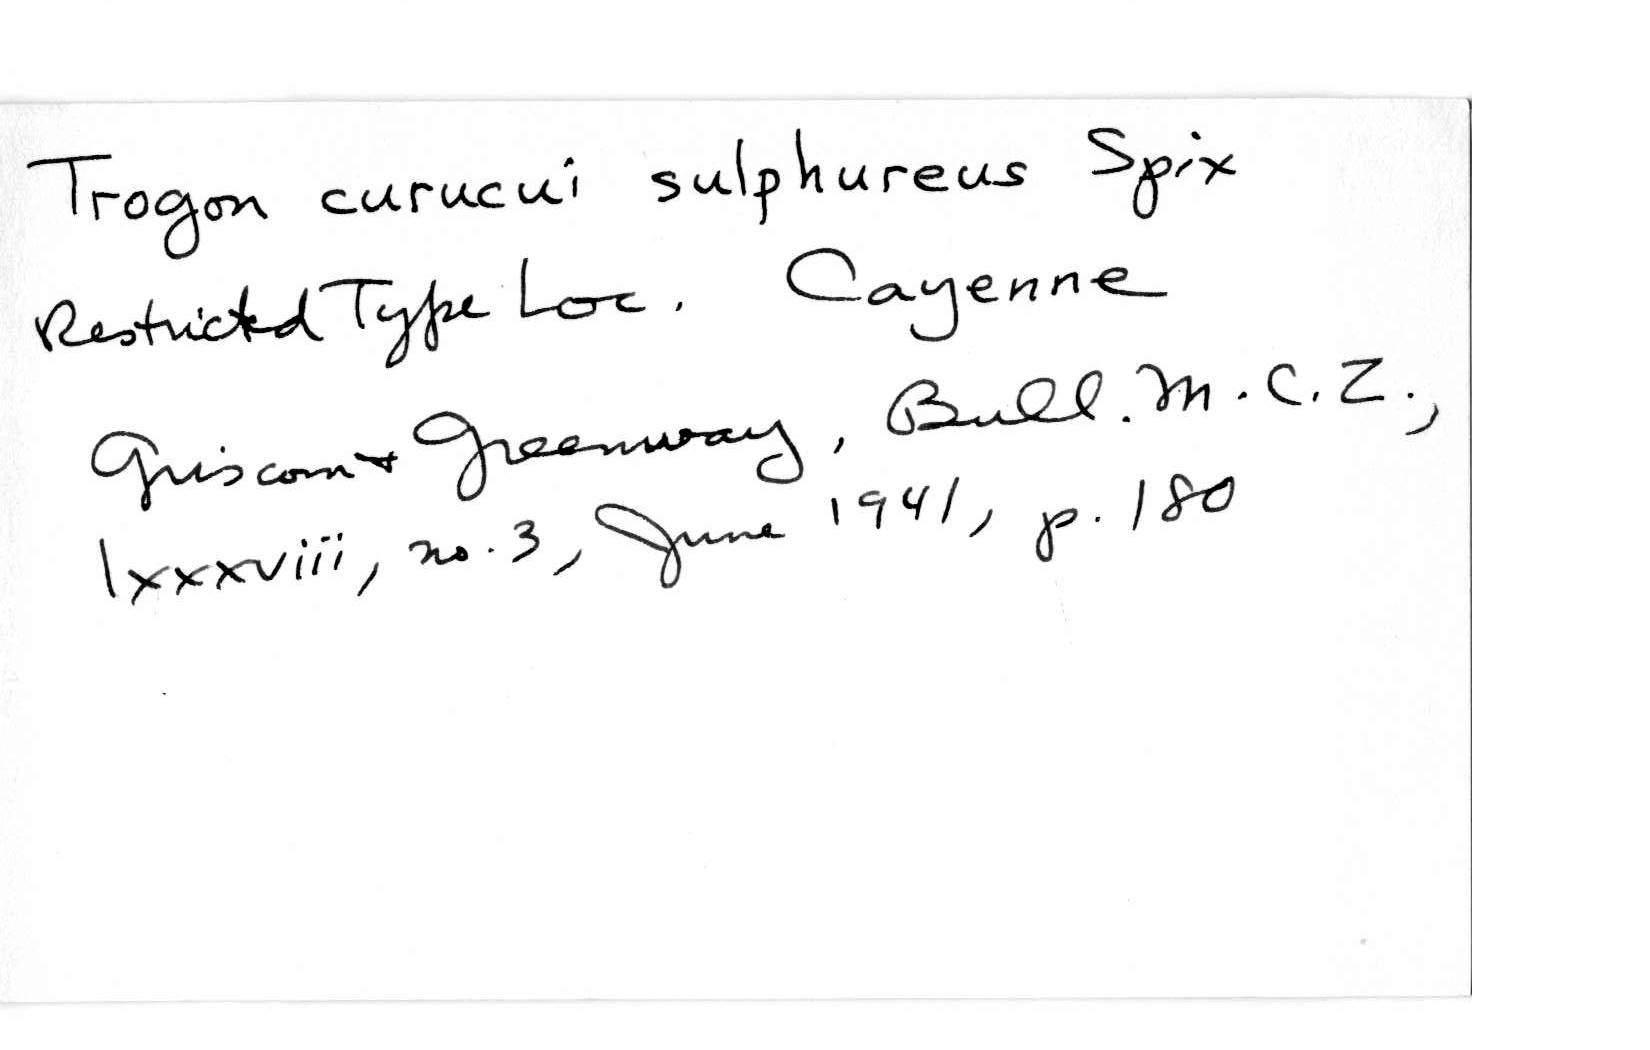 Trogon curucui sulphureus Spix
Restricted Type Loc. Cayenne
Griscom + Greenway, Bull. M.C.Z.,
lxxxviii, no. 3, June 1941, p. 180